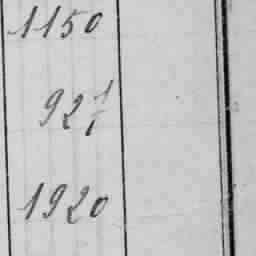 1150
927
1920